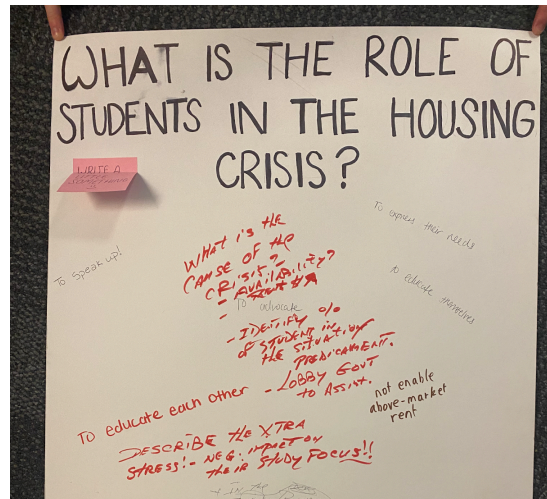 WHAT IS THE ROLE OF
STUDENTS IN THE HOUSING
CRISIS?
WRITE A
To speak up!
To express their needs
to educate themselves
WHAT IS THE
CAUSE OF THE
CRISIS?
- AVAILABILITY?
-
To advocate
- IDENTIFY %
OF STUDENT IN
THE SITUATION
PREDICAMENT.
- LOBBY GOVT
TO ASSIST.
To educate each other
not enable
above-market
rent
DESCRIBE THE XTRA
STRESS! - NEG. IMPACT ON
THEIR STUDY FOCUS!!
IN THE